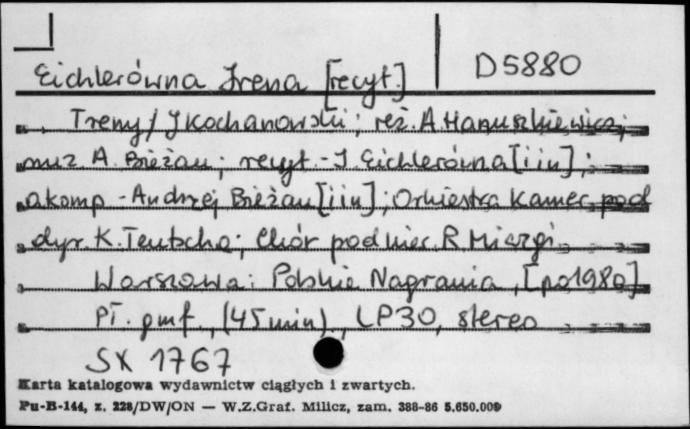 Eichlerówna Irena [recyt.] D5880
Treny / J Kochanowski; reż. A. Hanuszkiewicz;
muz. A. Bieżan; recyt. - I. Eichlerówna [i in];
akomp - Andrzej Bieżan [i in]; Orkiestra Kamer. pod
dyr. K. Teutscha; Chór pod kier. R. Miazgi
Warszawa: Polskie Nagrania, [po1980]
Pł. gmf., (45 min)., LP30, stereo
SX 1767
Karta katalogowa wydawnictw ciągłych i zwartych.
Pu-B-144, z. 228/DW/ON — W.Z.Graf. Milicz, zam. 388-86 5.650.000